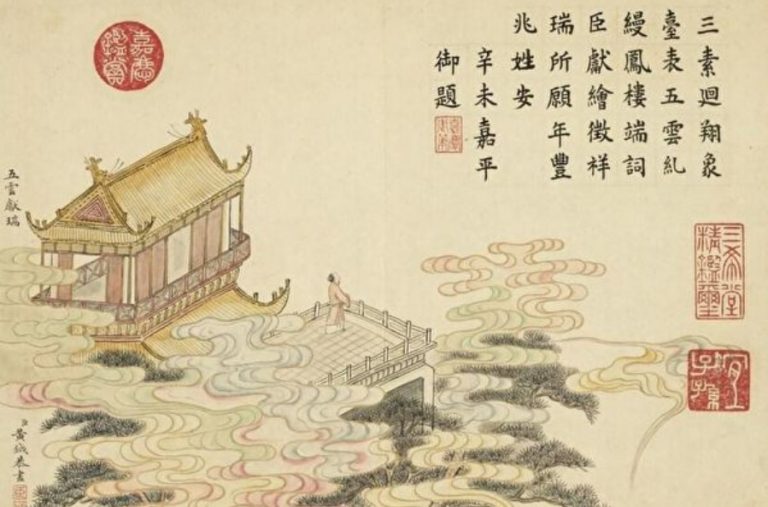 三素迴翔象
臺表五雲糺
縵鳳樓端詞
臣獻繪徵祥
瑞所願年豐
兆姓安
辛未嘉平
御題
三希堂
精鑑璽
宜
子孫
嘉慶
鑑賞
五雲獻瑞
臣黃鉞恭畫